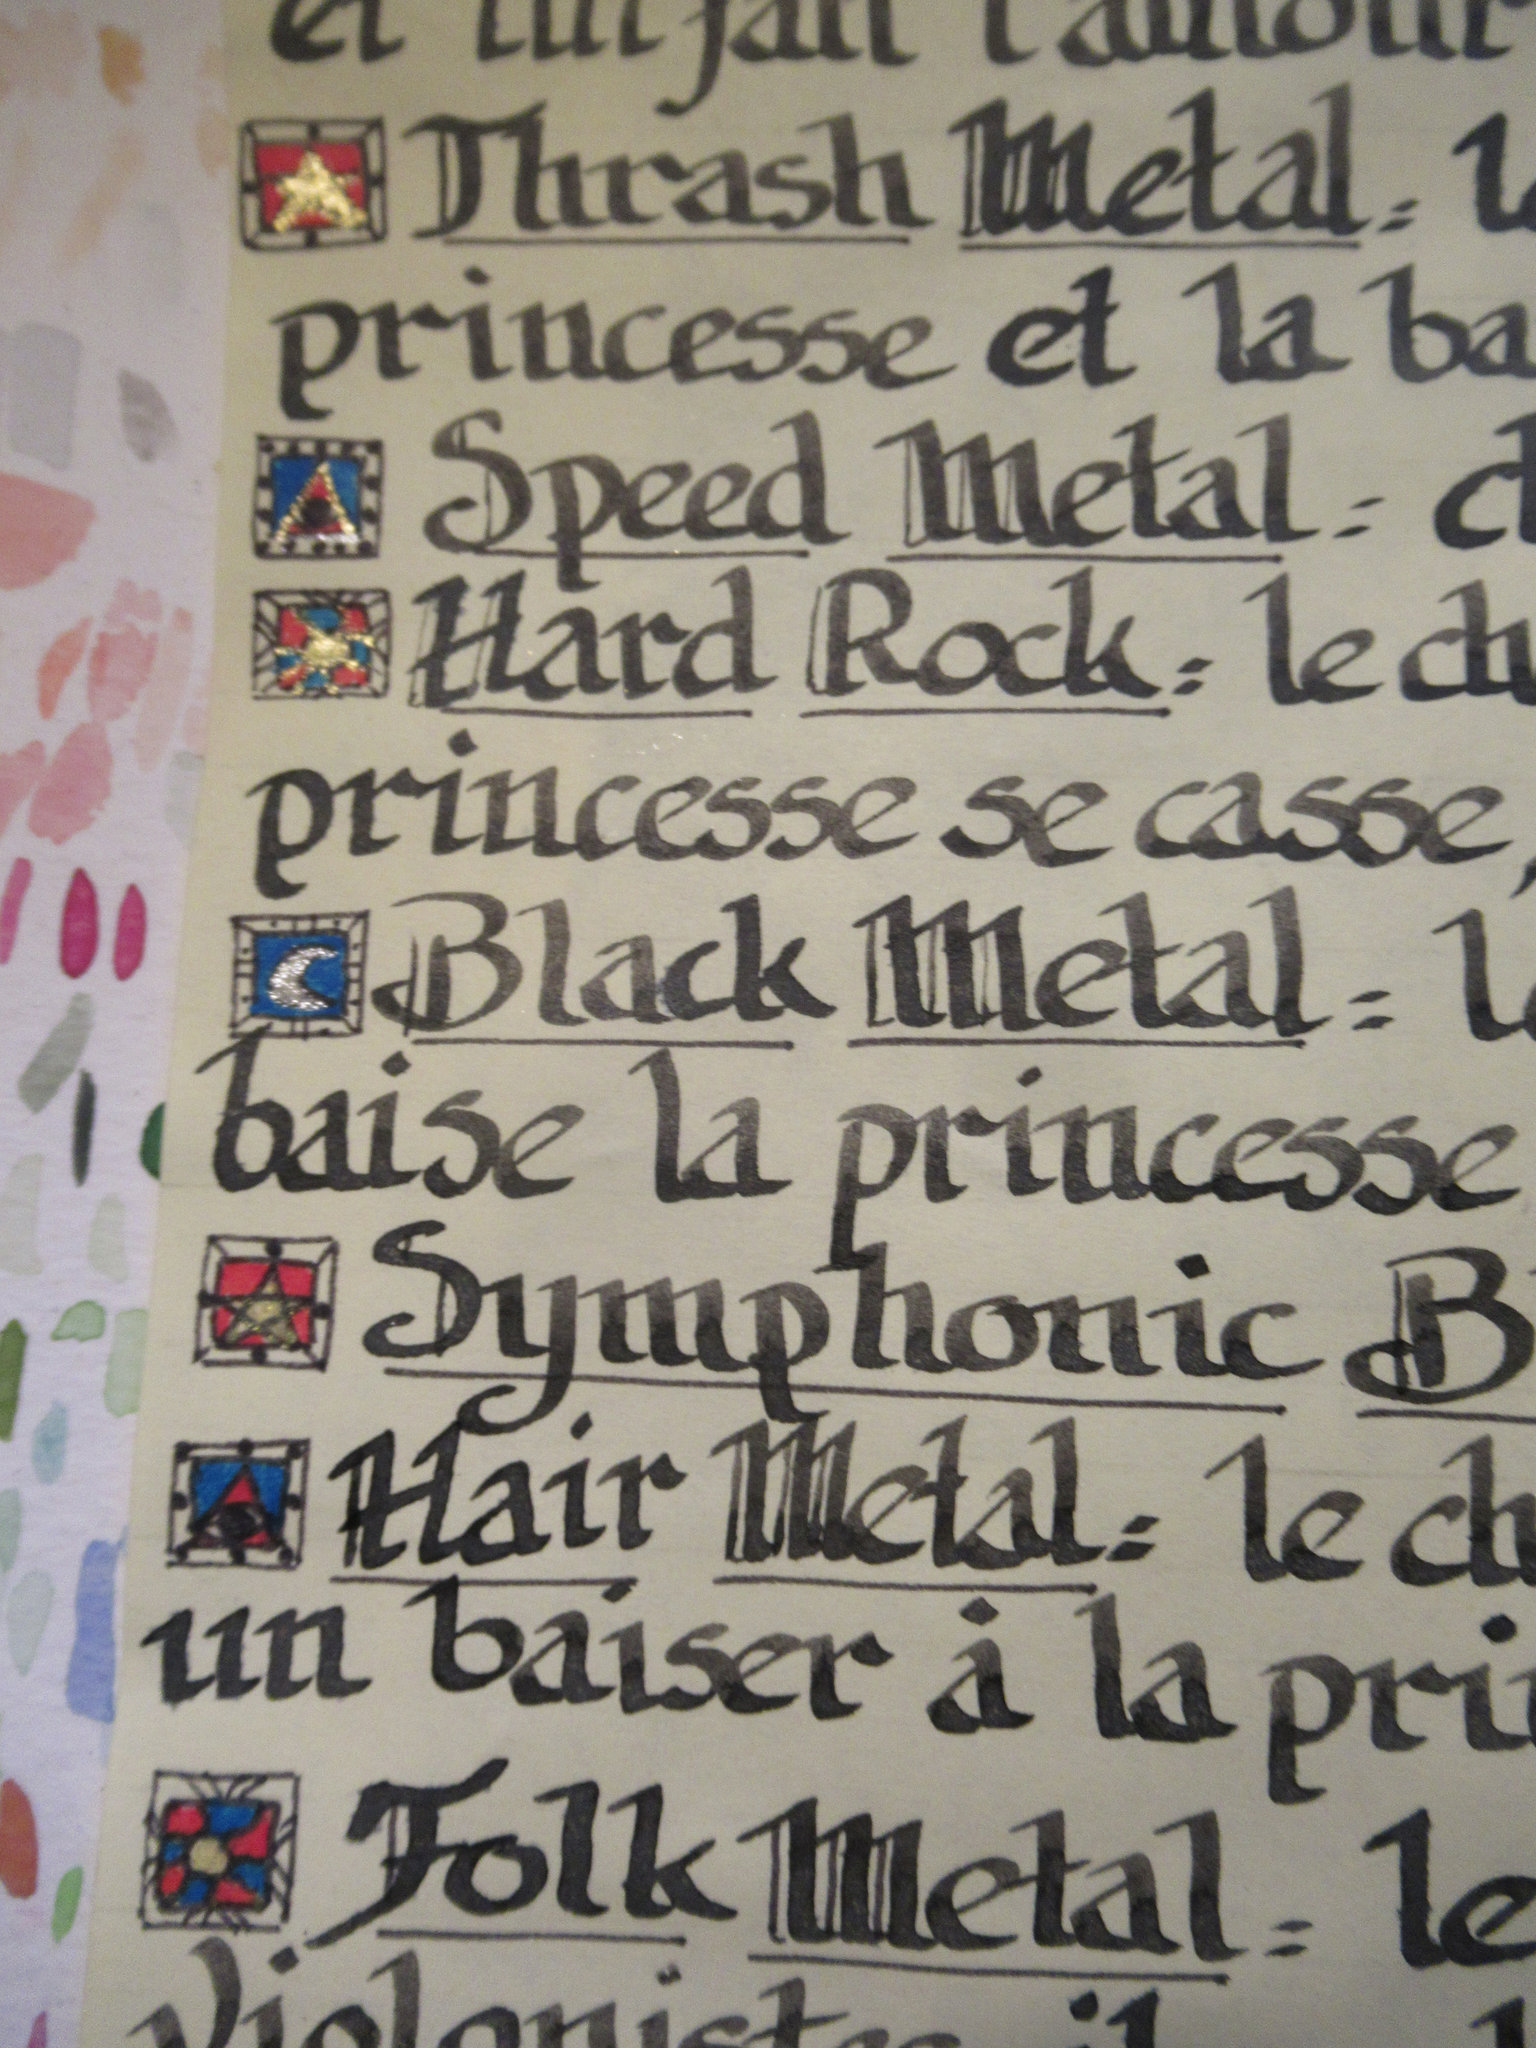 et lui fait l'amour
Thrash Metal: l
princesse et la ba
Speed Metal: c
Hard Rock: le ch
princesse se casse,
Black Metal: l
baise la princesse
Symphonic B
Hair Metal: le ch
un baiser à la pri
Folk Metal: le
violonistes il